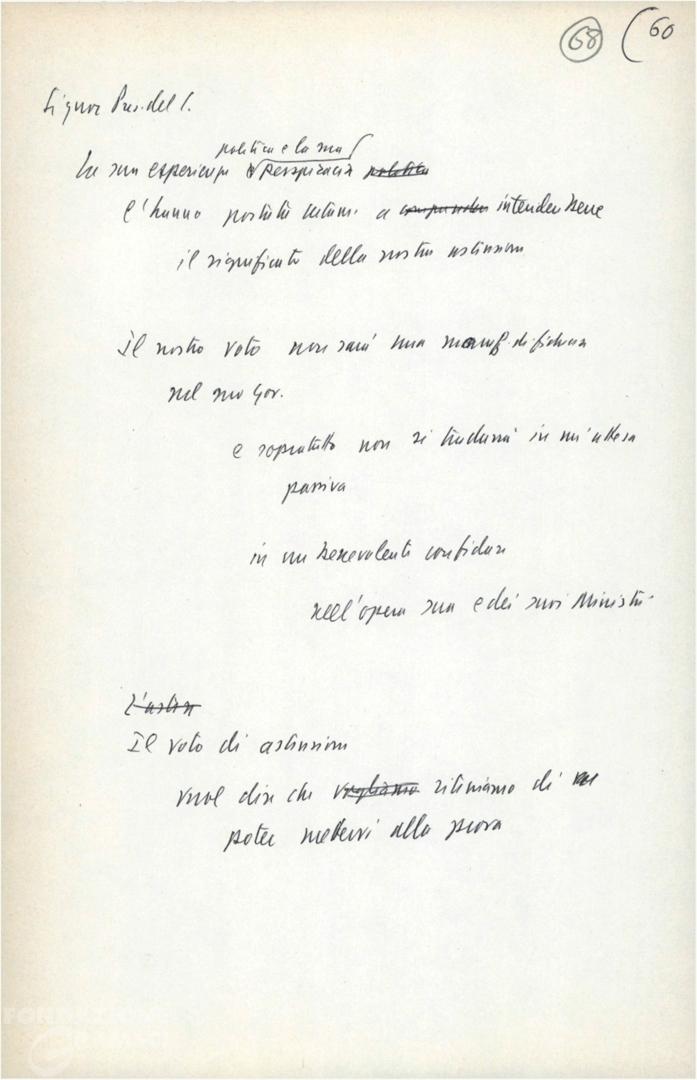 68 (60
Signor Pres. del C.
politica e la sua
La sua esperienza e perspicacia politica
l'hanno portata certam. a comprendere intender bene
il significato della nostra astensione
Il nostro voto non sarà una manif. di fiducia
nel suo Gov.
e sopratutto non si tradurrà in un'attesa
passiva
in un benevolente confidare
nell'opera sua e dei suoi Ministri
L'asten
Il voto di astensione
vuol dire che vogliamo riteniamo di
poter mettervi alla prova
FONDAZIONE
GRAMSCI